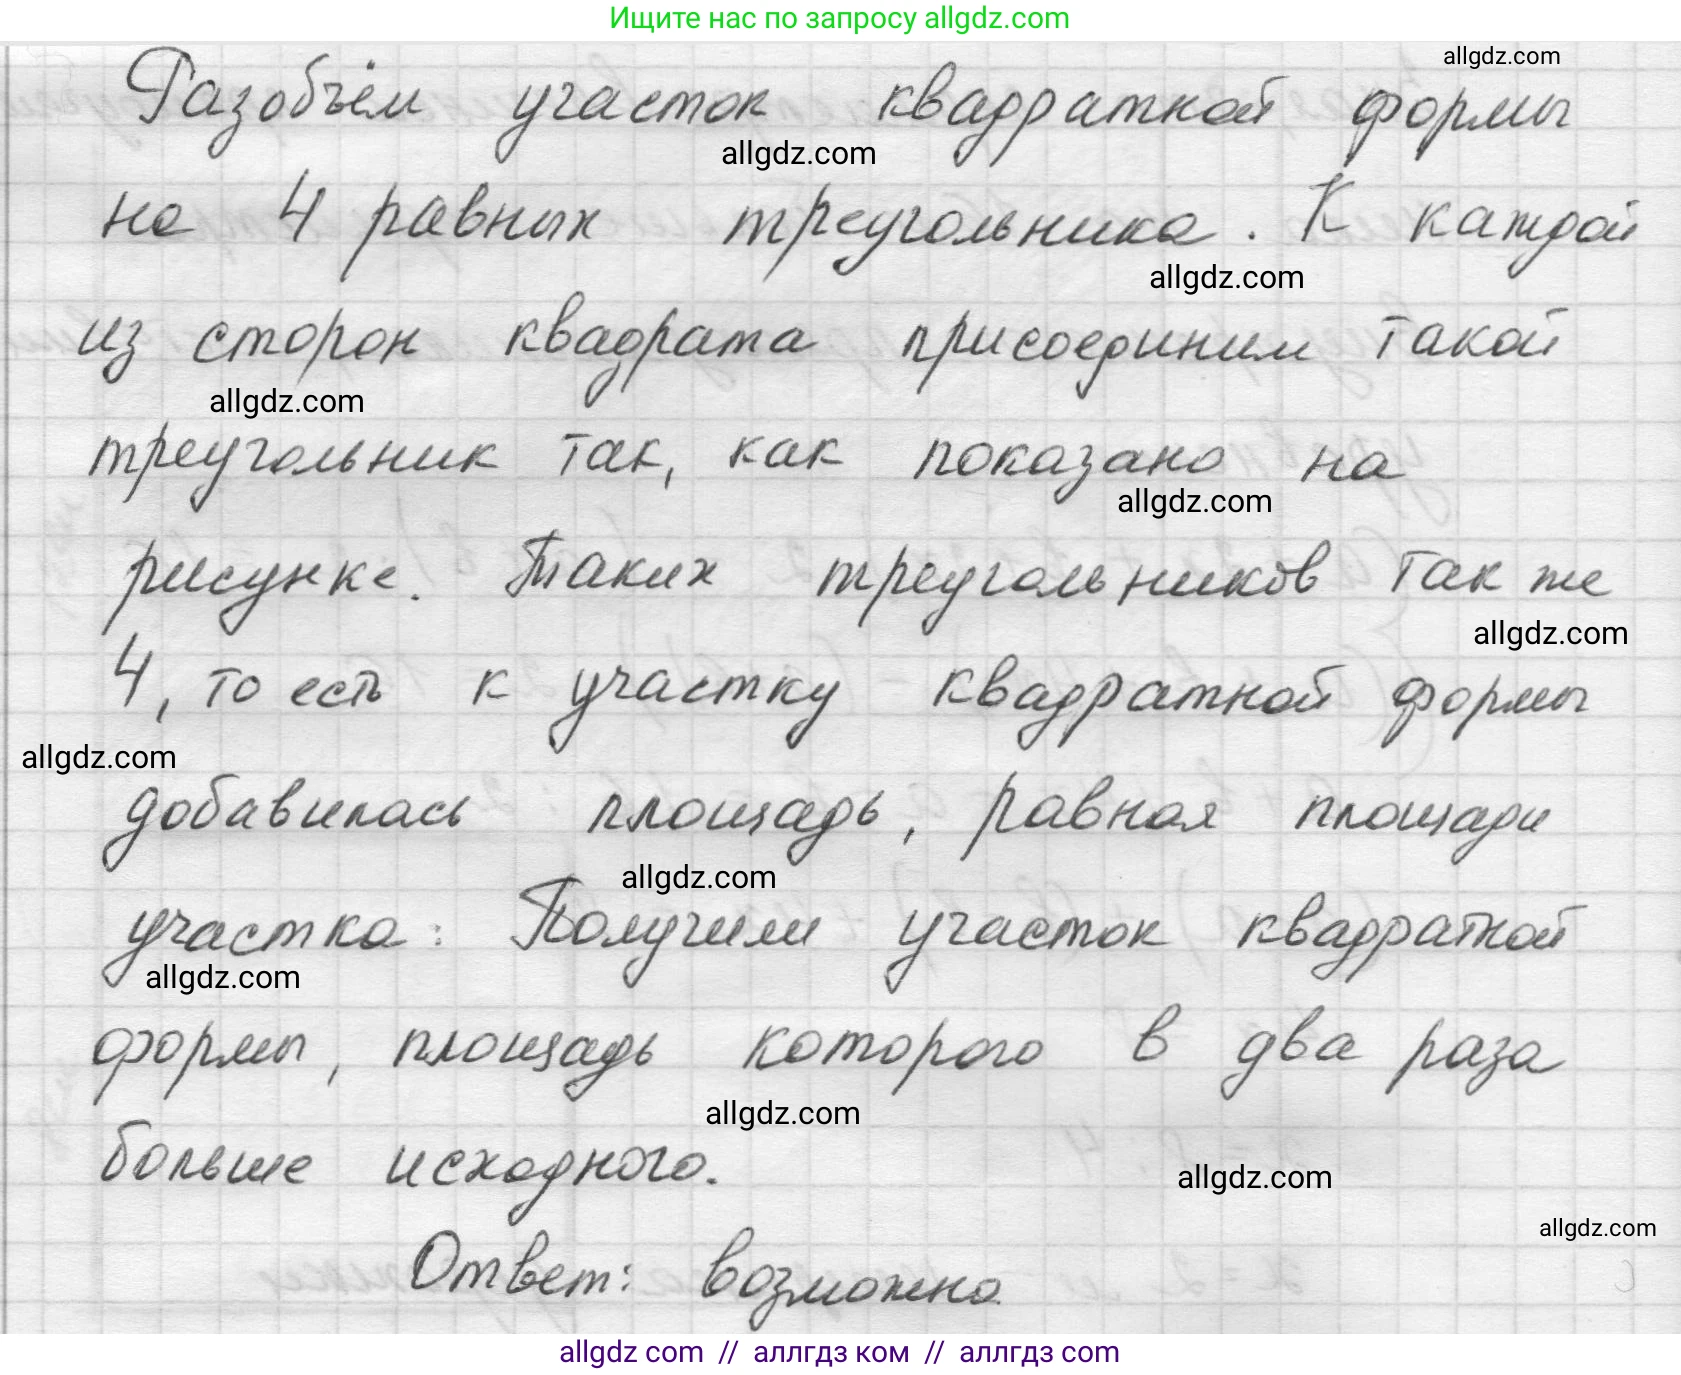 Ищите нас по запросу allgdz.com
allgdz.com
Разобъём участок квадратной формы
allgdz.com
на 4 равных треугольника. К каждой
allgdz.com
из сторон квадрата присоединим такой
allgdz.com
треугольник так, как показано на
allgdz.com
рисунке. Таких треугольников так же
allgdz.com
4, то есть к участку квадратной формы
allgdz.com
добавилась площадь, равная площади
allgdz.com
участка: Получили участок квадратной
allgdz.com
формы, площадь которого в два раза
allgdz.com
больше исходного.
allgdz.com
allgdz.com
Ответ: возможно
allgdz com // аллгдз ком // аллгдз com